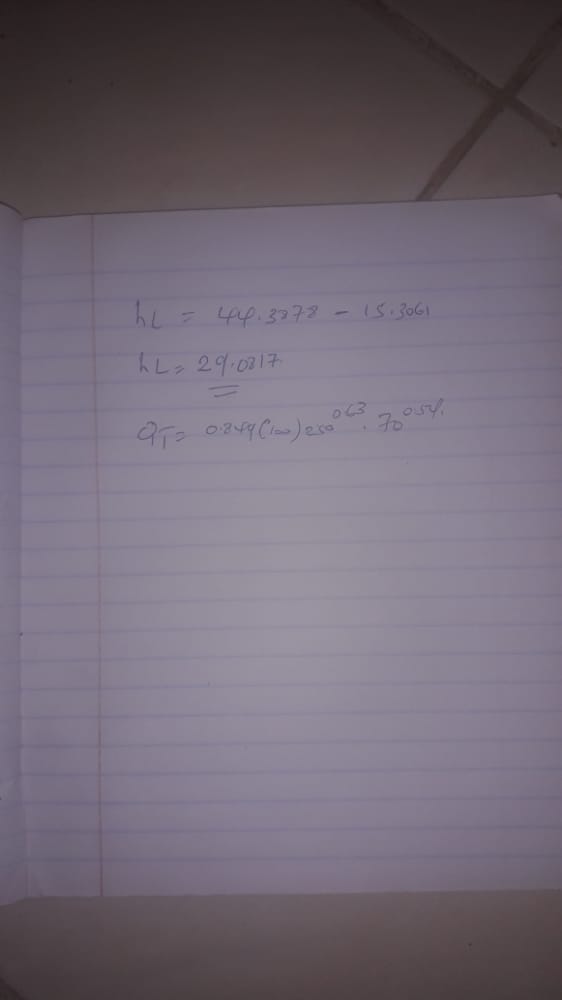 hL = 44.3878 - 15.3061
hL = 29.0817
QT = 0.849(100)250^0.63 . 70^0.54.